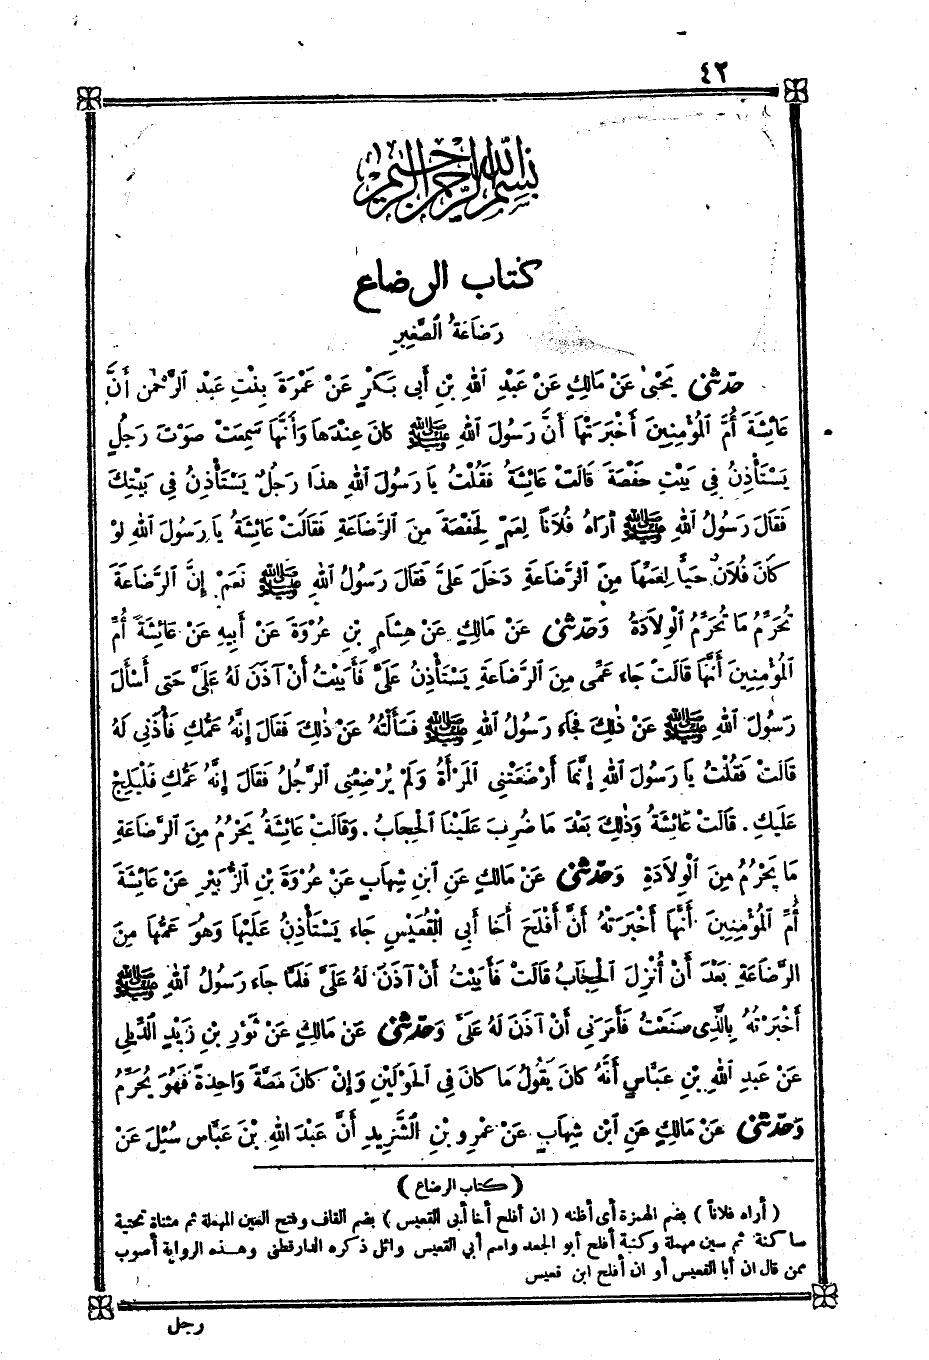 ٤٢
بسم الله الرحمن الرحيم
كتاب الرضاع
رَضَاعَةُ الصَّغِيرِ
حَدَّثَنِى يَحْيَى عَنْ مَالِكٍ عَنْ عَبْدِ اللهِ بْنِ أَبِى بَكْرٍ عَنْ عَمْرَةَ بِنْتِ عَبْدِ الرَّحْمٰنِ أَنَّ
عَائِشَةَ أُمَّ الْمُؤْمِنِينَ أَخْبَرَتْهَا أَنَّ رَسُولَ اللهِ ﷺ كَانَ عِنْدَهَا وَأَنَّهَا سَمِعَتْ صَوْتَ رَجُلٍ
يَسْتَأْذِنُ فِى بَيْتِ حَفْصَةَ قَالَتْ عَائِشَةُ فَقُلْتُ يَا رَسُولَ اللهِ هذَا رَجُلٌ يَسْتَأْذِنُ فِى بَيْتِكَ
فَقَالَ رَسُولُ اللهِ ﷺ أُرَاهُ فُلَانًا لِعَمٍّ لِحَفْصَةَ مِنَ الرَّضَاعَةِ فَقَالَتْ عَائِشَةُ يَا رَسُولَ اللهِ لَوْ
كَانَ فُلَانٌ حَيًّا لِعَمِّهَا مِنَ الرَّضَاعَةِ دَخَلَ عَلَىَّ فَقَالَ رَسُولُ اللهِ ﷺ نَعَمْ إِنَّ الرَّضَاعَةَ
تُحَرِّمُ مَا تُحَرِّمُ الْوِلَادَةُ وَحَدَّثَنِى عَنْ مَالِكٍ عَنْ هِشَامِ بْنِ عُرْوَةَ عَنْ أَبِيهِ عَنْ عَائِشَةَ أُمِّ
الْمُؤْمِنِينَ أَنَّهَا قَالَتْ جَاءَ عَمِّى مِنَ الرَّضَاعَةِ يَسْتَأْذِنُ عَلَىَّ فَأَبَيْتُ أَنْ آذَنَ لَهُ عَلَىَّ حَتَّى أَسْأَلَ
رَسُولَ اللهِ ﷺ عَنْ ذٰلِكَ فَجَاءَ رَسُولُ اللهِ ﷺ فَسَأَلْتُهُ عَنْ ذٰلِكَ فَقَالَ إِنَّهُ عَمُّكِ فَأْذَنِى لَهُ
قَالَتْ فَقُلْتُ يَا رَسُولَ اللهِ إِنَّمَا أَرْضَعَتْنِى الْمَرْأَةُ وَلَمْ يُرْضِعْنِى الرَّجُلُ فَقَالَ إِنَّهُ عَمُّكِ فَلْيَلِجْ
عَلَيْكِ . قَالَتْ عَائِشَةُ وَذٰلِكَ بَعْدَ مَا ضُرِبَ عَلَيْنَا الْحِجَابُ . وَقَالَتْ عَائِشَةُ يَحْرُمُ مِنَ الرَّضَاعَةِ
مَا يَحْرُمُ مِنَ الْوِلَادَةِ وَحَدَّثَنِى عَنْ مَالِكٍ عَنِ ابْنِ شِهَابٍ عَنْ عُرْوَةَ بْنِ الزُّبَيْرِ عَنْ عَائِشَةَ
أُمِّ الْمُؤْمِنِينَ أَنَّهَا أَخْبَرَتْهُ أَنَّ أَفْلَحَ أَخَا أَبِى الْقُعَيْسِ جَاءَ يَسْتَأْذِنُ عَلَيْهَا وَهُوَ عَمُّهَا مِنَ
الرَّضَاعَةِ بَعْدَ أَنْ أُنْزِلَ الْحِجَابُ قَالَتْ فَأَبَيْتُ أَنْ آذَنَ لَهُ عَلَىَّ فَلَمَّا جَاءَ رَسُولُ اللهِ ﷺ
أَخْبَرْتُهُ بِالَّذِى صَنَعْتُ فَأَمَرَنِى أَنْ آذَنَ لَهُ عَلَىَّ وَحَدَّثَنِى عَنْ مَالِكٍ عَنْ ثَوْرِ بْنِ زَيْدٍ الدِّيلِى
عَنْ عَبْدِ اللهِ بْنِ عَبَّاسٍ أَنَّهُ كَانَ يَقُولُ مَا كَانَ فِى الْحَوْلَيْنِ وَإِنْ كَانَ مَصَّةً وَاحِدَةً فَهُوَ يُحَرِّمُ
وَحَدَّثَنِى عَنْ مَالِكٍ عَنِ ابْنِ شِهَابٍ عَنْ عَمْرِو بْنِ الشَّرِيدِ أَنَّ عَبْدَ اللهِ بْنَ عَبَّاسٍ سُئِلَ عَنْ
( كتاب الرضاع )
( أراه فلاناً ) بضم الهمزة أى أظنه ( ان أفلح أخا أبى القعيس ) بضم القاف وفتح العين المهملة ثم مثناة تحتية
ساكنة ثم سين مهملة وكنية أفلح أبو الجعد واسم أبي القعيس وائل ذكره الدارقطنى وهذه الرواية أصوب
ممن قال ان أبا القعيس أو ان أفلح ابن قعيس
رجل